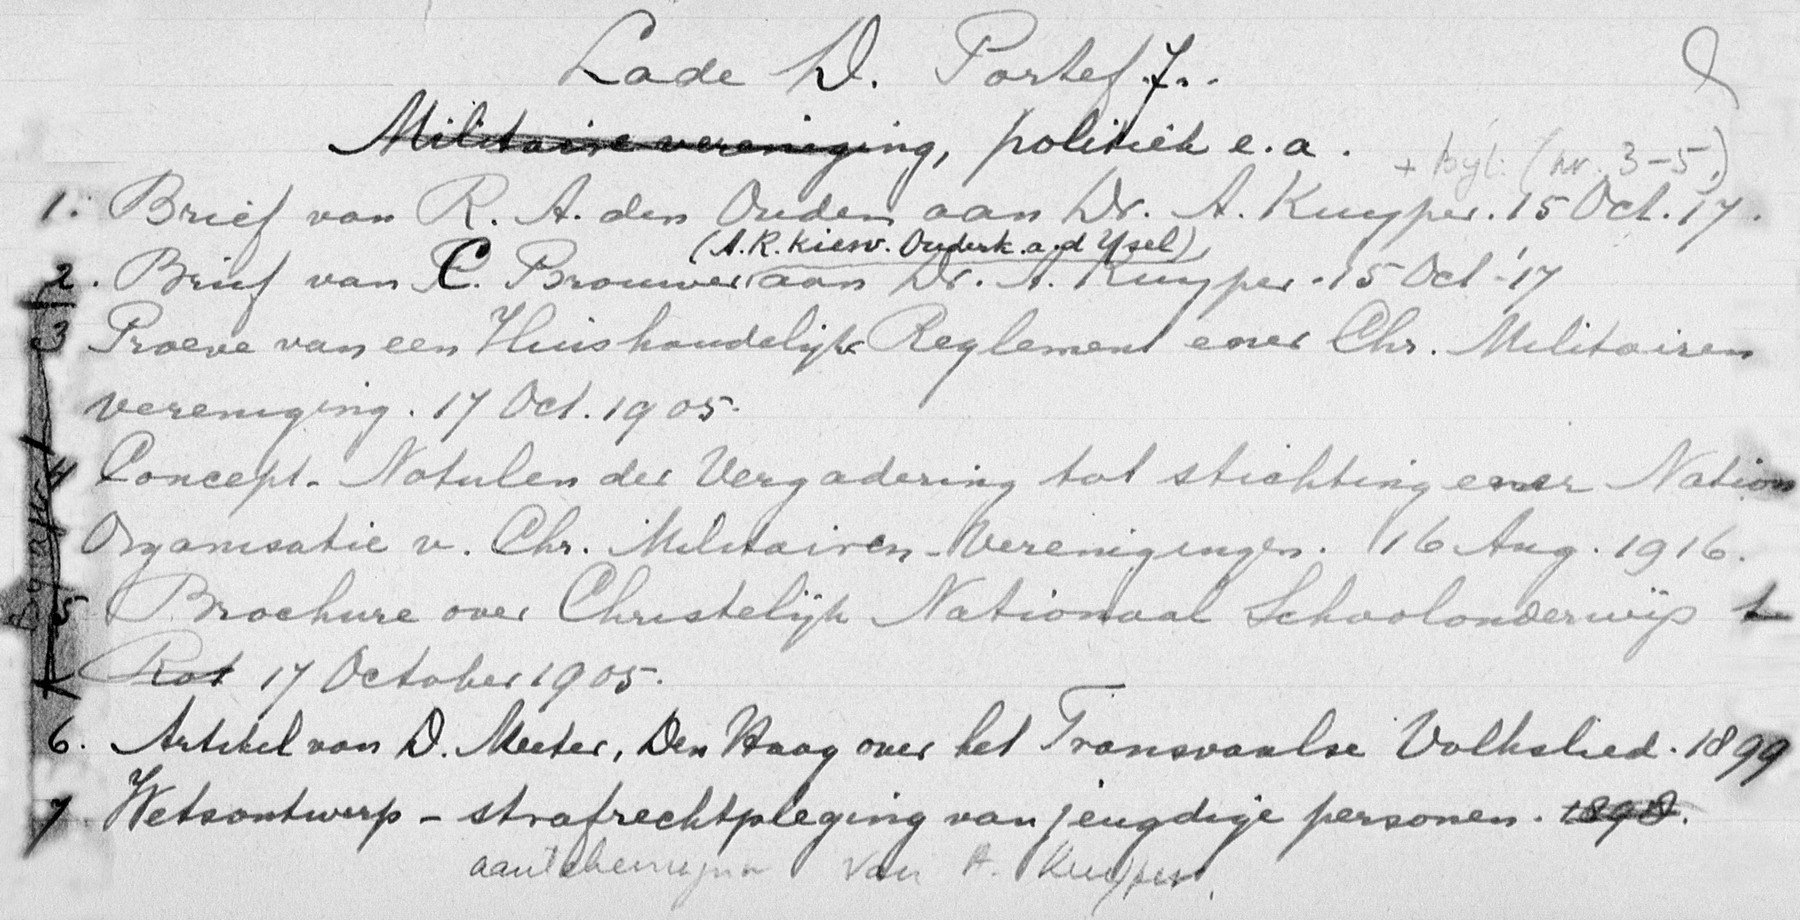 Lade D. Portef. 7.
Militaire vereniging, politiek e.a.
+ bijl. (nr. 3-5)
1. Brief van R. A. den Ouden aan Dr. A. Kuyper. 15 Oct. 17.
(A.R. kiesv. Ouderk. a.d Ysel)
2. Brief van C. Brouwer aan Dr. A. Kuyper. 15 Oct '17
3 Proeve van een Huishoudelijk Reglement ener Chr. Militairen
vereniging. 17 Oct. 1905.
4 Concept-Notulen der Vergadering tot stichting ener Nation
Organisatie v. Chr. Militairen-Verenigingen. 16 Aug. 1916.
5 Brochure over Christelijk Nationaal Schoolonderwijs t
Rot 17 October 1905.
6. Artikel van D. Meeter, Den Haag over het Transvaalse Volkslied. 1899
7. Wetsontwerp - strafrechtpleging van jeugdige personen. 1898.
aantekeningen van A. Kuyper.